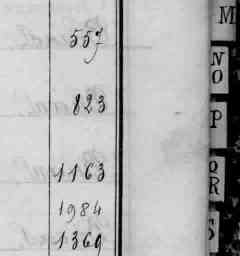 557
823
1163
1984
1369
M
NO
P
QR
S